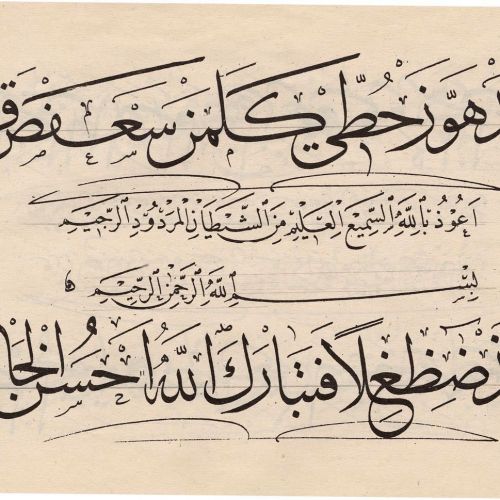 د هَوَّز حُطّي كَلَمَن سَعَفَص ق
اَعُوذُ بِاللّٰهِ السَّمِيعِ العَلِيمِ مِنَ الشَّيْطَانِ المَرْدُودِ الرَّجِيمِ
بِسْمِ اللّٰهِ الرَّحْمٰنِ الرَّحِيمِ
ذ ضَظِغلًا فَتَبَارَكَ اللّٰهُ اَحْسَنُ الخَا